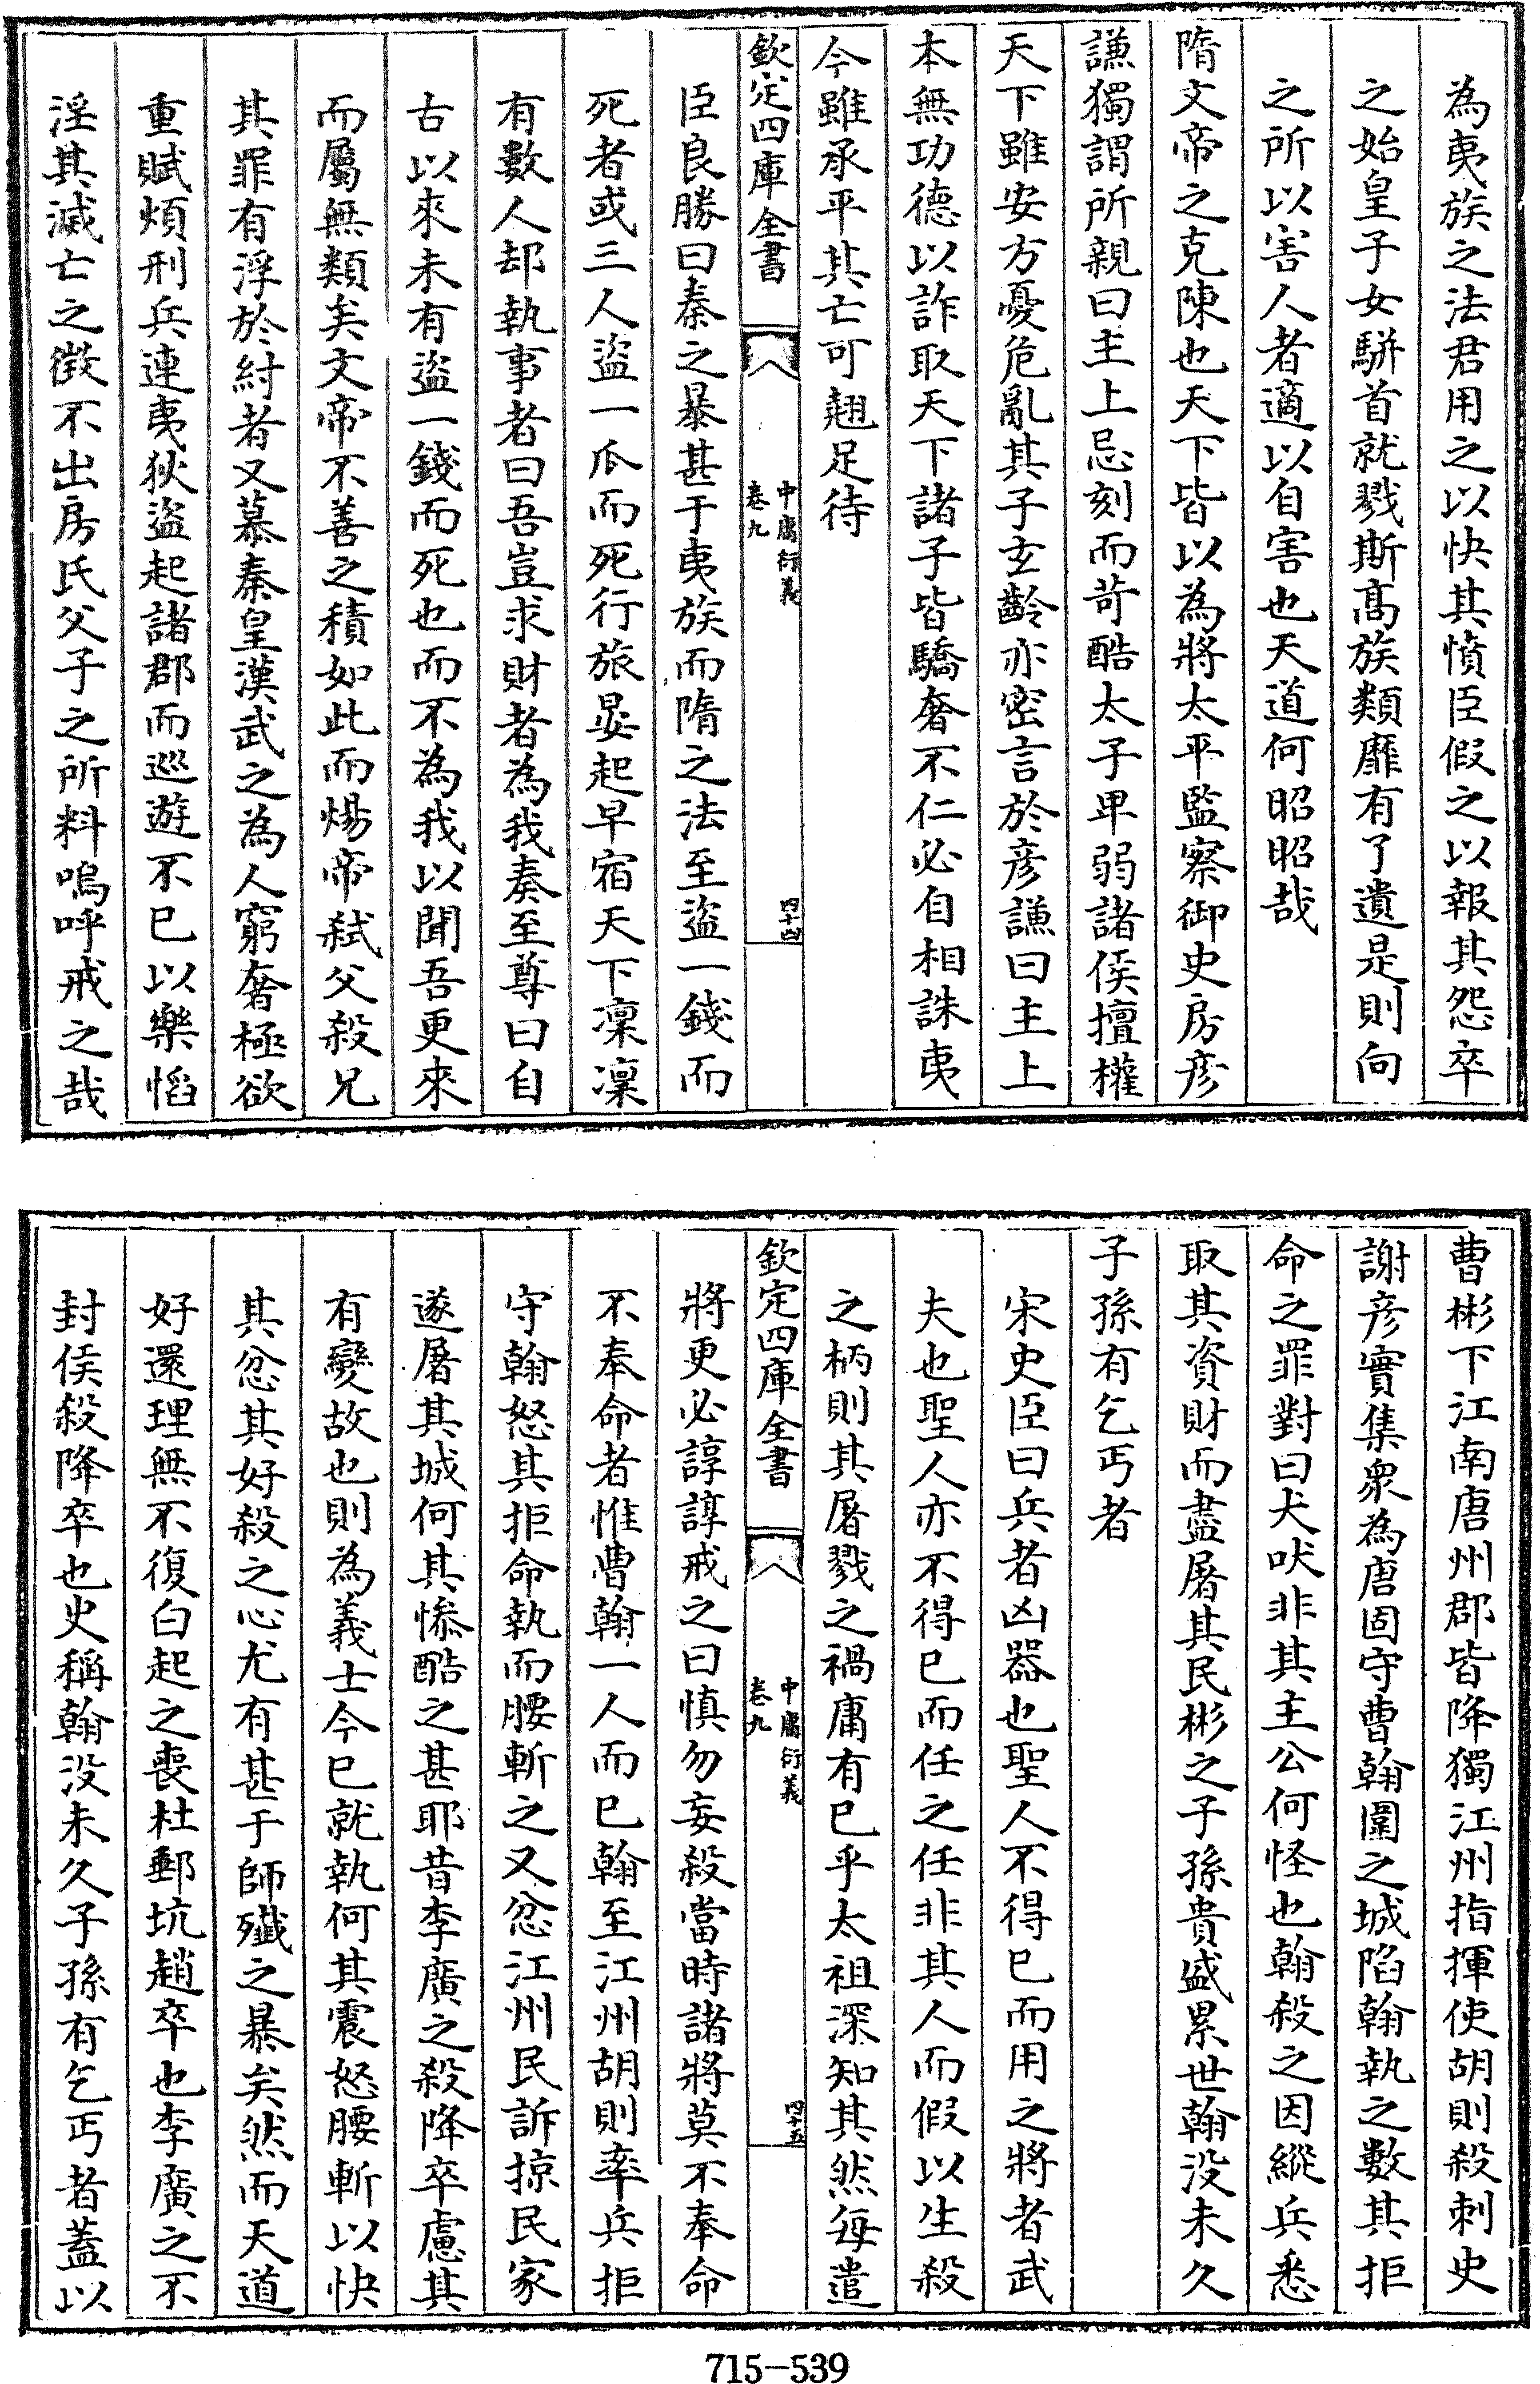 為夷族之法君用之以快其憤臣假之以報其怨卒
之始皇子女駢首就戮斯髙族類靡有了遺是則向
之所以害人者適以自害也天道何昭昭哉
隋文帝之克陳也天下皆以為將太平監察御史房彦
謙獨謂所親曰主上忌刻而苛酷太子卑弱諸侯擅權
天下雖安方憂危亂其子玄齡亦密言於彦謙曰主上
本無功德以詐取天下諸子皆驕奢不仁必自相誅夷
今雖承平其亡可翹足待
欽定四庫全書
中庸衍義
卷九
四十四
臣良勝曰秦之暴甚于夷族而隋之法至盜一錢而
死者或三人盜一瓜而死行旅晏起早宿天下凜凜
有數人刼執事者曰吾豈求財者為我奏至尊曰自
古以來未有盜一錢而死也而不為我以聞吾更來
而屬無類矣文帝不善之積如此而煬帝弑父殺兄
其罪有浮於紂者又慕秦皇漢武之為人窮奢極欲
重賦煩刑兵連夷狄盜起諸郡而巡遊不已以樂慆
淫其滅亡之徴不出房氏父子之所料嗚呼戒之哉
曹彬下江南唐州郡皆降獨江州指揮使胡則殺刺史
謝彦實集衆為唐固守曹翰圍之城陷翰執之數其拒
命之罪對曰犬吠非其主公何怪也翰殺之因縱兵悉
取其資財而盡屠其民彬之子孫貴盛累世翰没未久
子孫有乞丐者
宋史臣曰兵者凶器也聖人不得已而用之將者武
夫也聖人亦不得已而任之任非其人而假以生殺
之柄則其屠戮之禍庸有已乎太祖深知其然每遣
欽定四庫全書
中庸衍義
卷九
四十五
將更必諄諄戒之曰慎勿妄殺當時諸將莫不奉命
不奉命者惟曹翰一人而已翰至江州胡則率兵拒
守翰怒其拒命執而腰斬之又忿江州民訴掠民家
遂屠其城何其惨酷之甚耶昔李廣之殺降卒慮其
有變故也則為義士今已就執何其震怒腰斬以快
其忿其好殺之心尤有甚于師殲之暴矣然而天道
好還理無不復白起之喪杜郵坑趙卒也李廣之不
封侯殺降卒也史稱翰没未久子孫有乞丐者蓋以
715-539